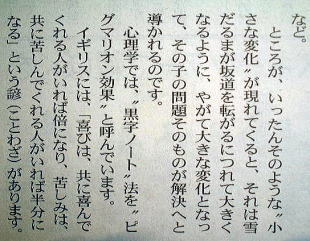 など。
　ところが、いったんそのような〝小
さな変化〟が現れてくると、それは雪
だるまが坂道を転がるにつれて大きく
なるように、やがて大きな変化となっ
て、その子の問題そのものが解決へと
導かれるのです。
　心理学では、〝黒字ノート〟法を〝ピ
グマリオン効果〟と呼んでいます。
　イギリスには、「喜びは、共に喜んで
くれる人がいれば倍になり、苦しみは、
共に苦しんでくれる人がいれば半分に
なる」という諺（ことわざ）があります。